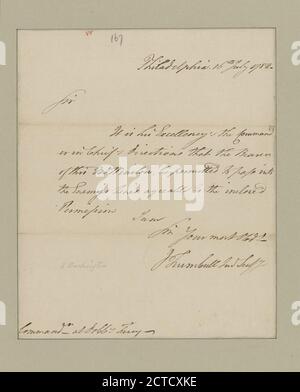 167
Philadelphia 15th July 1782.
Sir
It is his Excellency the Command
er in Chief's Directions that the Bearer
of this be permitted to pass into
the Enemy's Lines agreeable to the inclosed
Permission
I am
Sir Your most Obed.
J Trumbull Jun Secy
G Washington
Command.r at Dobbs Ferry
alamy
Image ID: 2CTCXKE
www.alamy.com